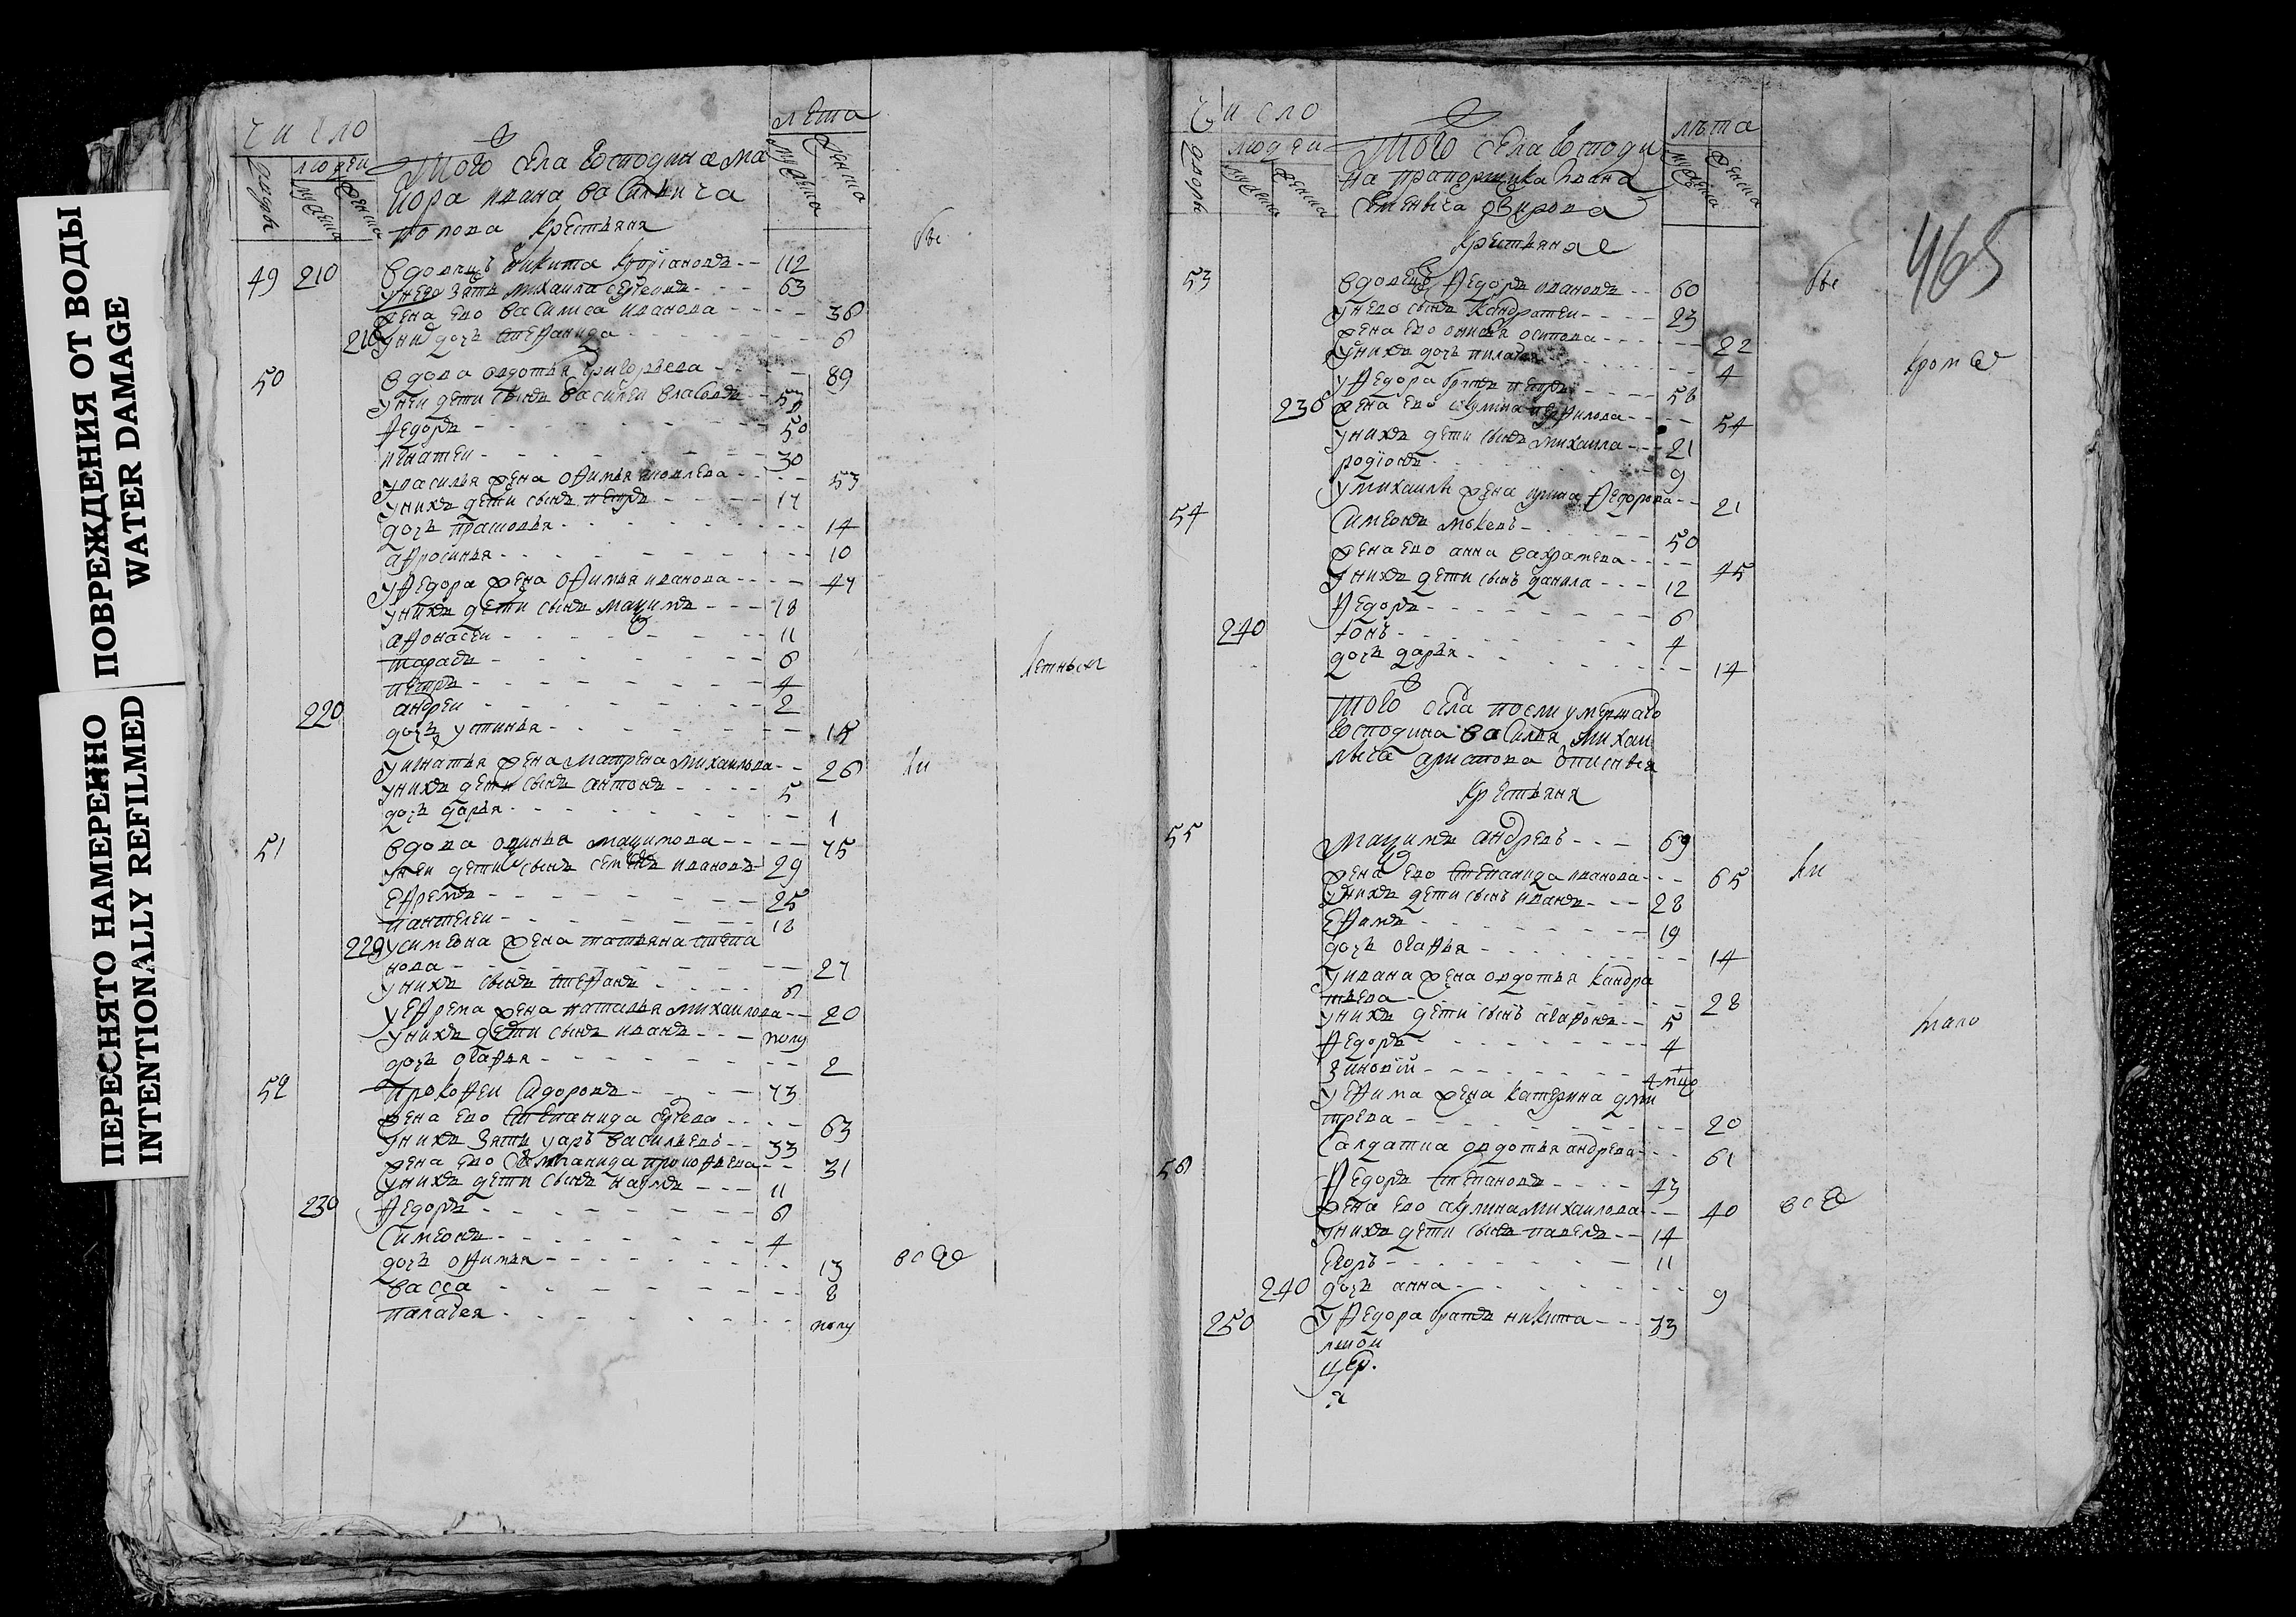 ПОВРЕЖДЕНИЯ ОТ ВОДЫ
WATER DAMAGE
ПЕРЕСНЯТО НАМЕРЕННО
INTENTIONALLY REFILMED
число
лета
дворы
людеи
мужеска
женска
мужеска
женска
Того села господина ма
иора ивана василича
попова крестьяня
49 210 вдовецъ никита 112
унево зять михаила сергеивъ 63
жена ево василиса иванова 38
210 уних дочь стефанида 6
50 вдова авдотья григорьева 89
унеи дети сынъ василеи власовъ
федоръ 50
игнатеи 30
увасилья жена офимья яковлева 53
унихъ дети сынъ петръ 17
дочь прасковья 14
афросинья 10
уфедора жена офимья иванова 47
унихъ дети сынъ мацимъ 18
афонасеи 11
тарасъ 6
петръ 4
220 андреи 2
дочь устинья 15
уигнатья жена матрена михаилова 26 ки
унихъ дети сынъ антонъ 5
дочь дарья 1
летныхъ
51 вдова мацимова 75
унеи дети сынъ семенъ ивановъ 29
ефремъ 25
пантелеи 18
220 усимеона жена татьяна степа
нова 27
унихъ сынъ стефанъ 6
уефрема жена наталья михаилова 20
унихъ дети сынъ иванъ полу
дочь огафья 2
52 прокофеи сидоровъ 73
жена ево степанида сергева 63
унихъ зять уаръ васильевъ 33
жена ево степанида прокофева 31
унихъ дети сынъ наумъ 11
230 федоръ 6
симеонъ 4
дочь офимья 13
васса 8
палагея полу
число
лѣта
дворы
людеи
мужеска
женска
мужеска
женска
Того села господи
на прапорщика ивана
семеныча
крестьяня
465
53 вдовецъ федоръ ивановъ 60
унево сынъ кандратеи 23
жена ево осипова 22
унихъ дочь пилагея 4
кроме
уфедора братъ петръ 58
230 жена ево акулина перфилова 54
унихъ дети сынъ михаила 21
родіонъ 9
умихаилы жена ирина федорова 21
54 симеонъ 50
жена ево анна вахрамева 45
унихъ дети сынъ данила 12
федоръ 6
240 іонъ 4
дочь дарья 14
того села посли умершаго
господина василья михаи
лыча
крестьяня
55 мацимъ андревъ 69
жена ево степанида иванова 65 ки
унихъ дети сынъ иванъ 28
ефимъ 19
дочь огафья 14
уивана жена авдотья кандра
тьева 28
унихъ дети сынъ агафонъ 5
федоръ 4
зиновіи 4 мце
уефима жена катерина дми
трева 20
салдатка авдотья андрева 61
56 федоръ степановъ 43
жена ево акулина михаилова 40
унихъ дети сынъ павелъ 14
егоръ 11
240 дочь анна 9
250 уфедора братъ никита 33